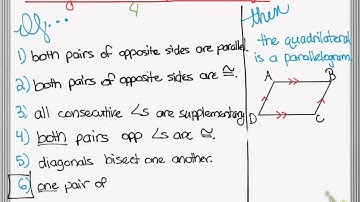 4
If...
then
1) both pairs of opposite sides are parallel.
the quadrilateral
is a parallelogram.
2) both pairs of opposite sides are ≅.
A B
3) all consecutive ∠s are supplementary
4) both pairs opp ∠s are ≅.
D C
5) diagonals bisect one another.
6) one pair of